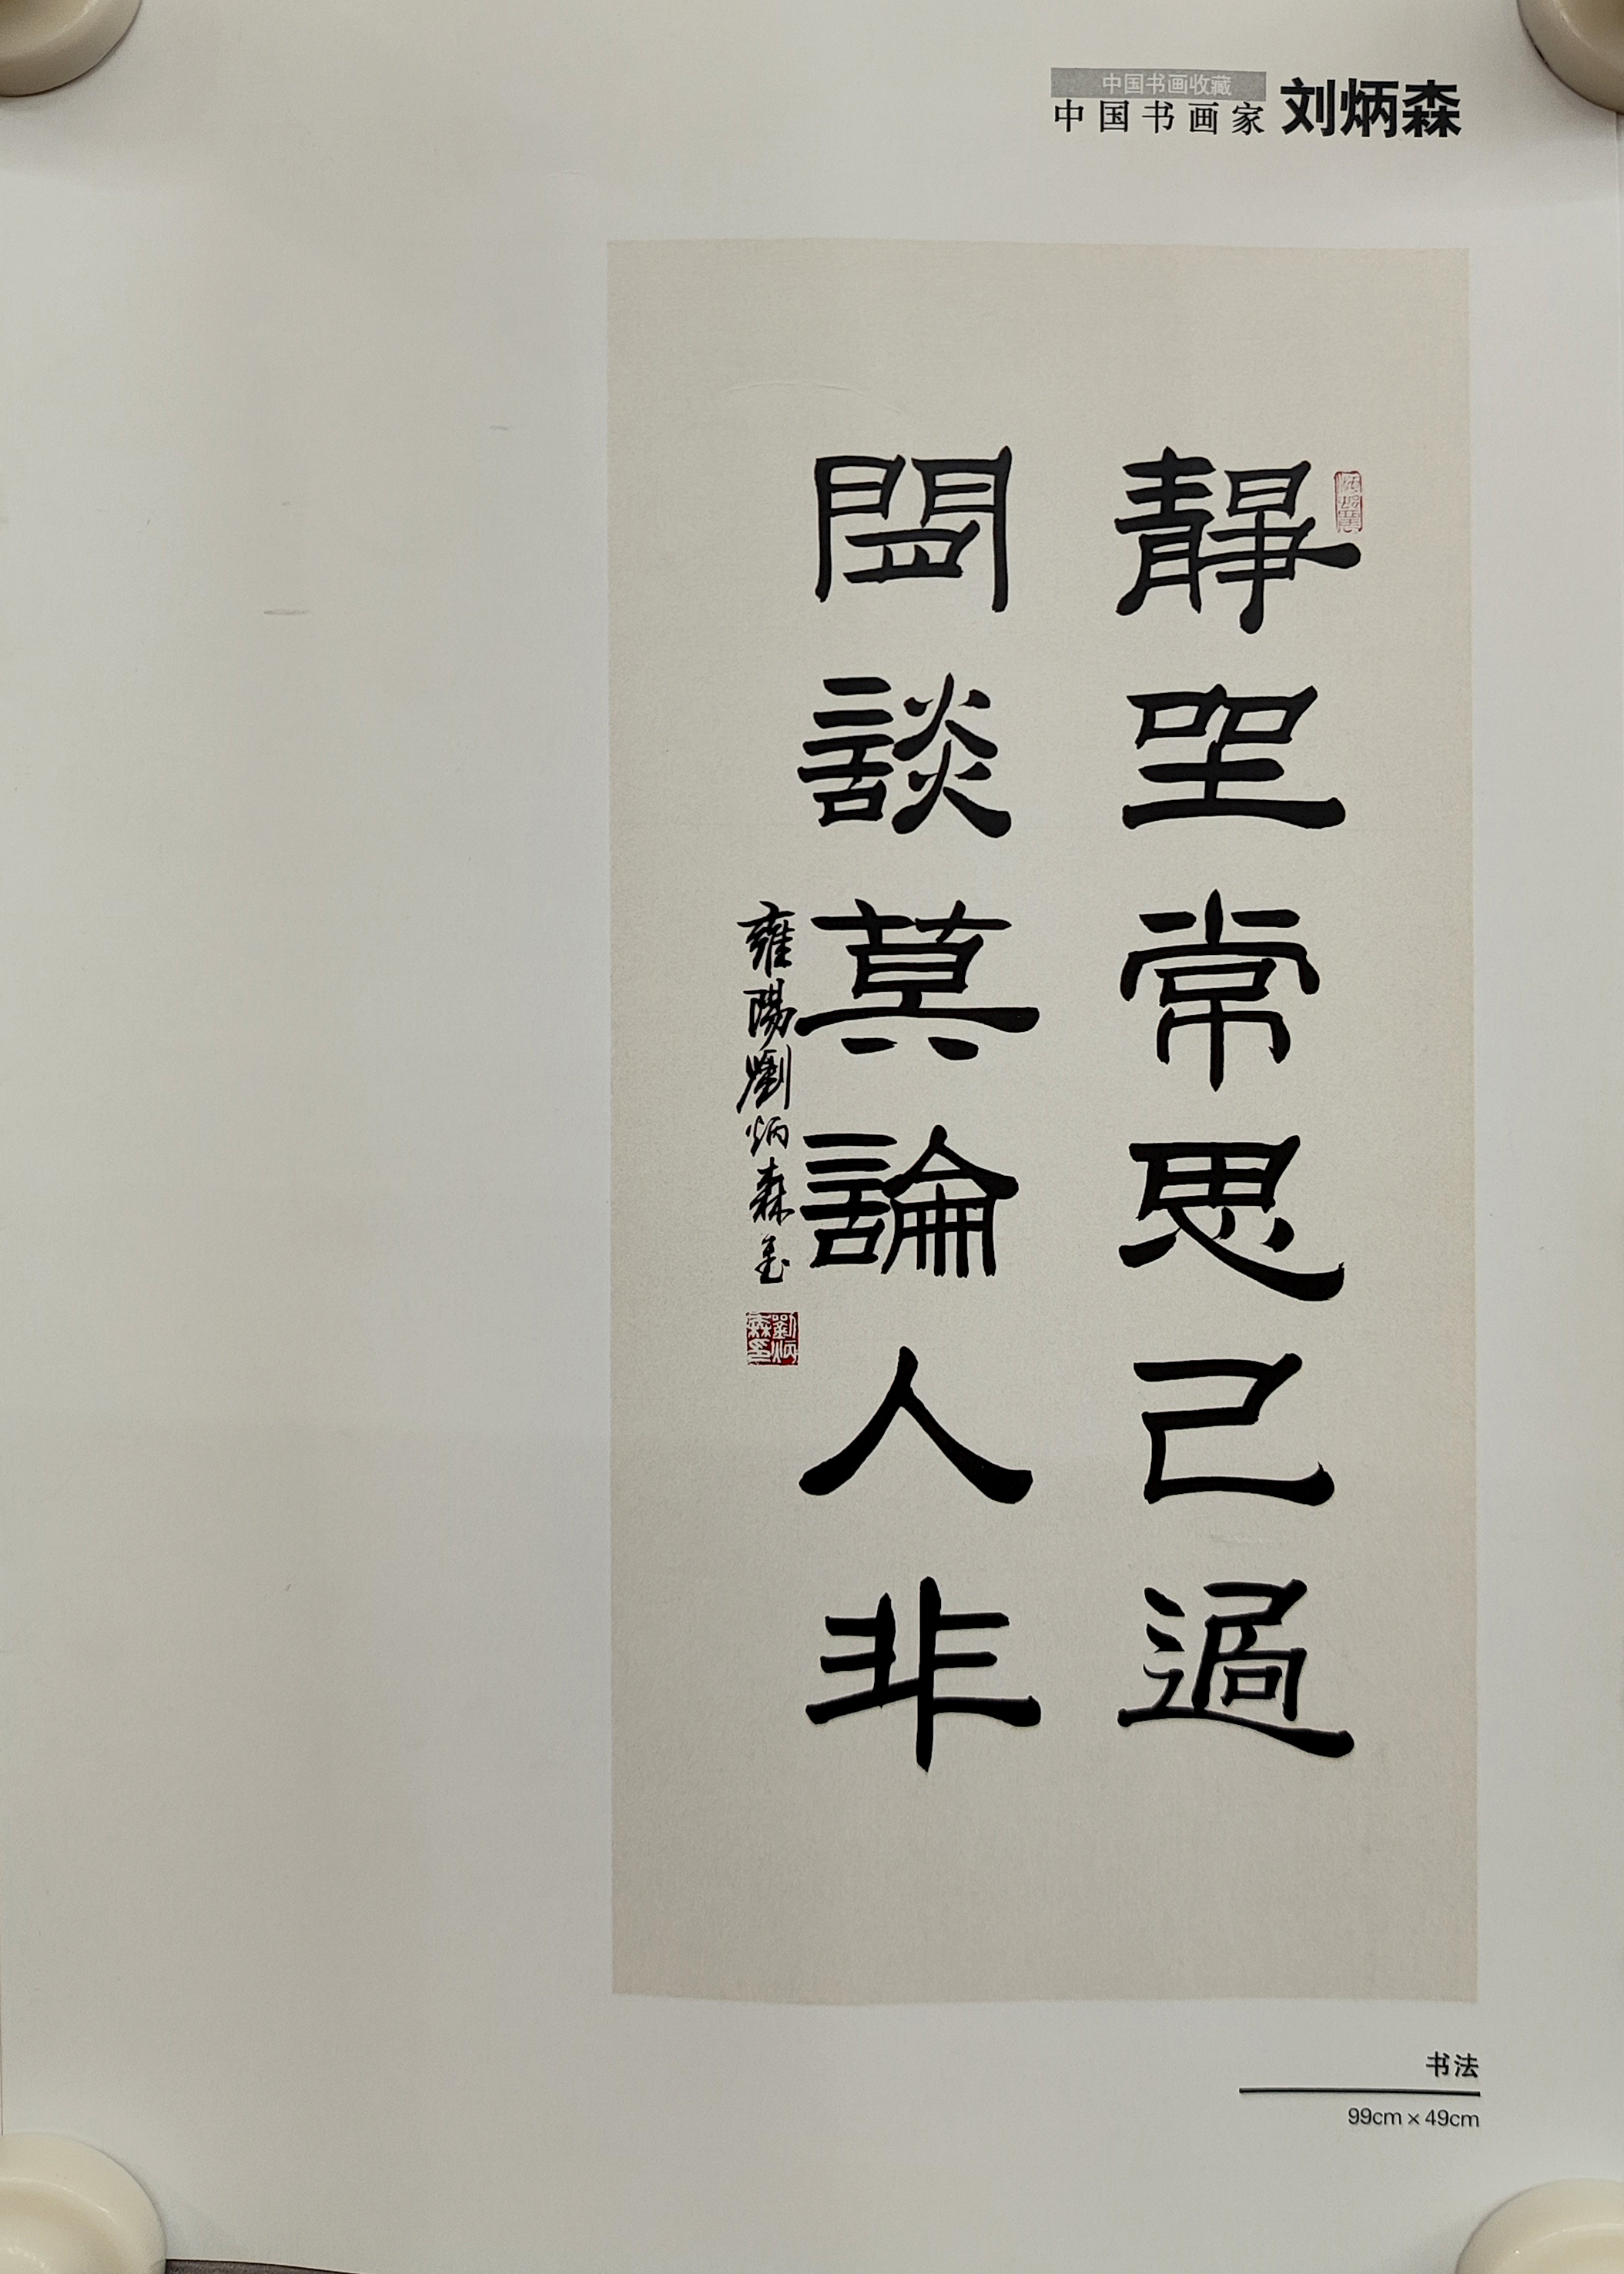 中国书画收藏
中国书画家 刘炳森
靜坐常思己過
閒談莫論人非
雍陽劉炳森書
劉炳森印
书法
99cm×49cm